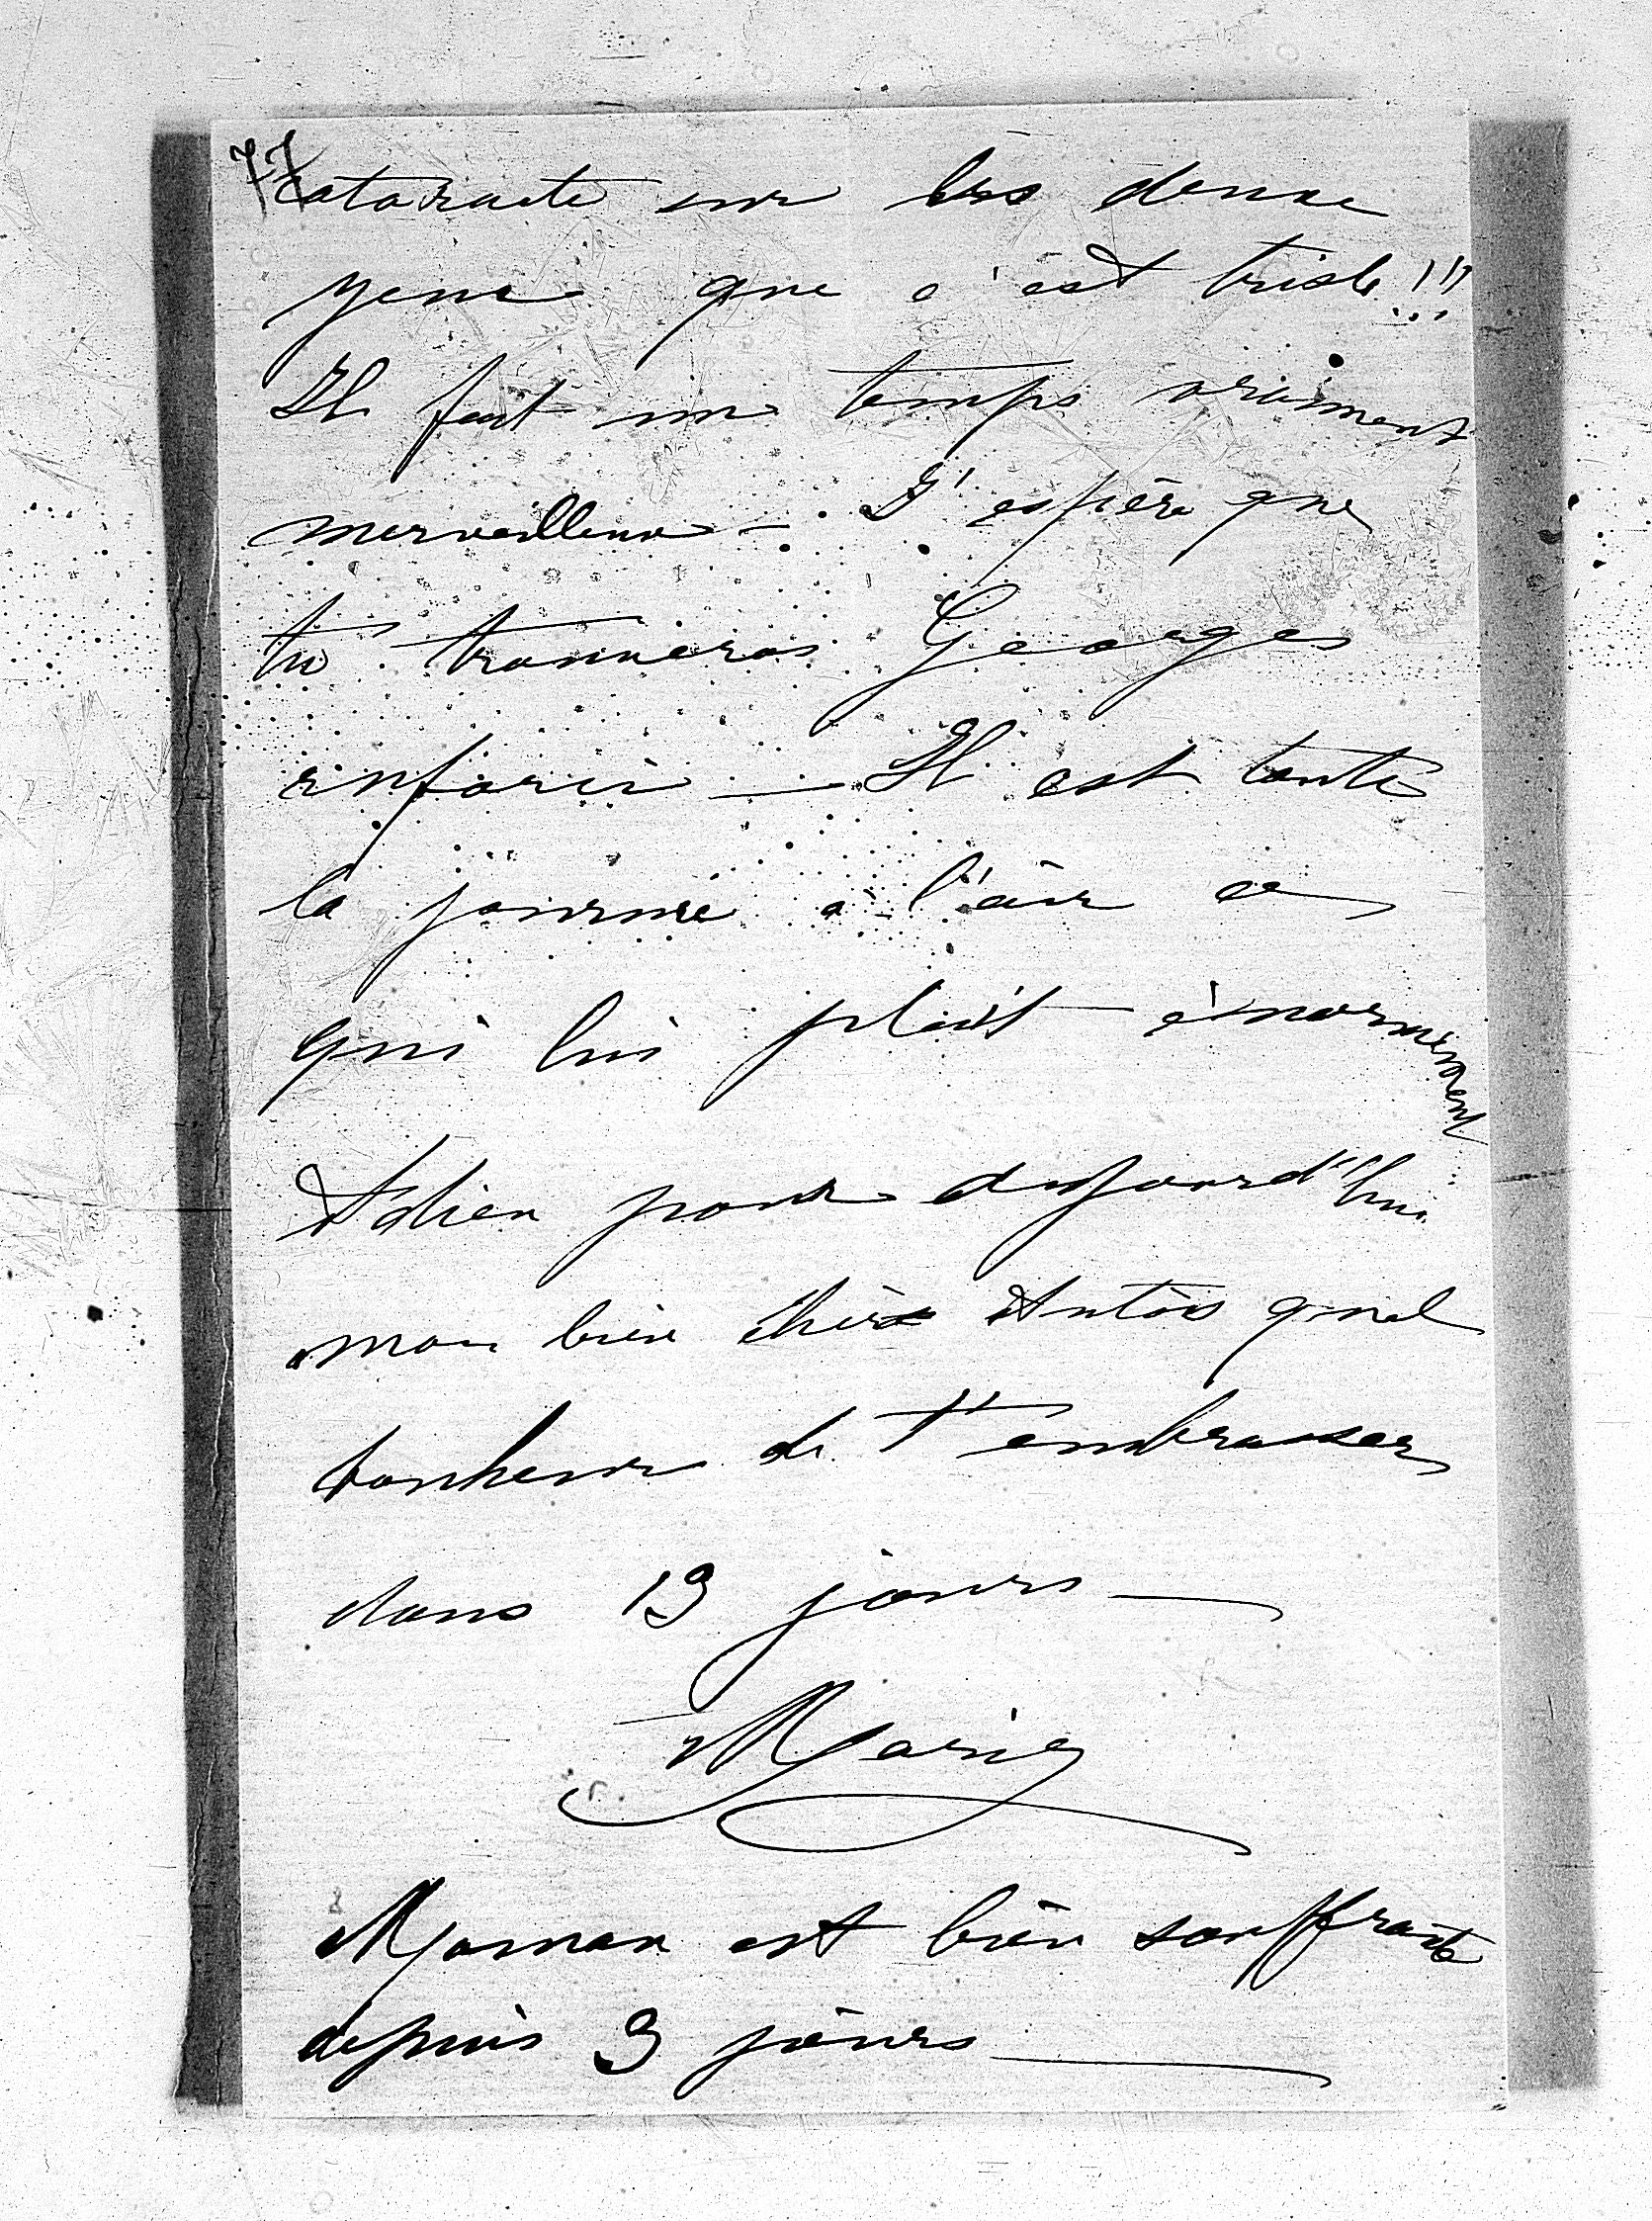 77
cataracte sur les deux
yeux que c'est triste!!!
Il fait un temps vraiment
merveilleux - J'espère que
tu trouveras Georges
enforci — Il est toute
la journée à l'air ce
qui lui plaît énormément
Adieu pour aujourd'hui
mon bien cher Antois quel
bonheur de t'embrasser
dans 13 jours —
Marie
Maman est bien souffrante
depuis 3 jours —